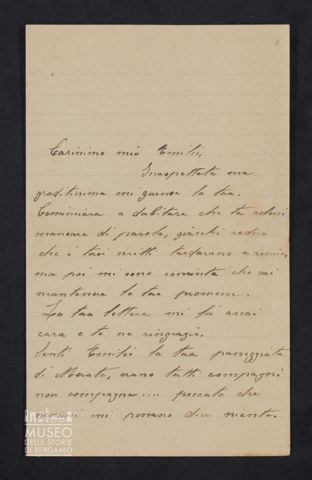 1
Carissimo mio Emilio,
Inaspettata ma
graditissima mi giunse la tua.
Cominciava a dubitare che tu volessi
mancare di parola, giacchè vedeva
che i tuoi scritti tardavano a venire,
ma poi mi sono convinta che sai
mantenere la tua promessa.
La tua lettera mi fu assai
cara e te ne ringrazio.
Senti Emilio la tua passeggiata
di Morata, erano tutti compagni
non compagne .... peccato che
mi possano dire niente.
MUSEO
DELLE STORIE
DI BERGAMO